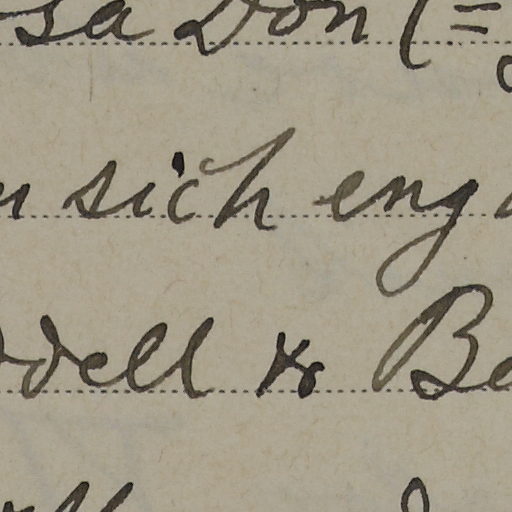 sa Don (=
sich eng
dell & Be